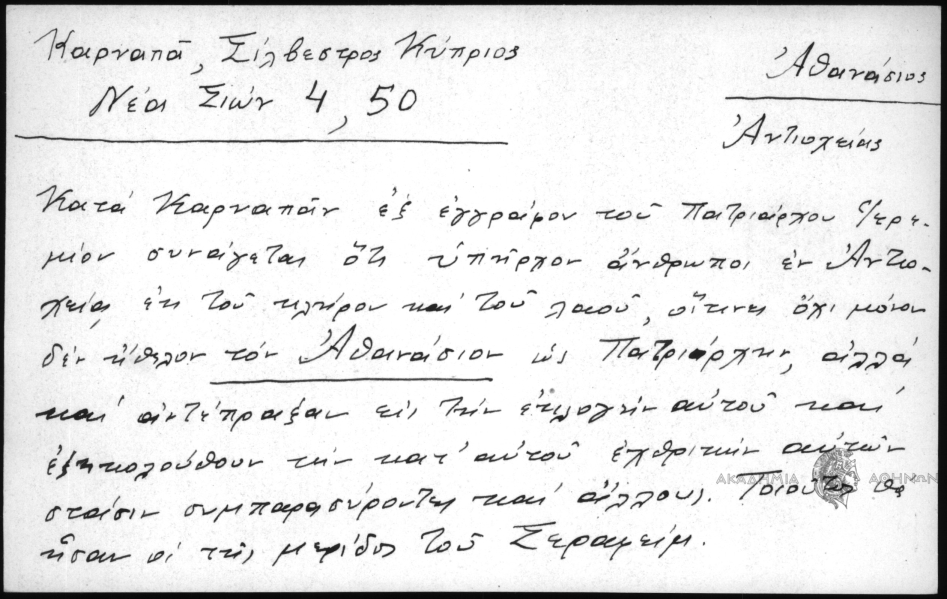 Καρναπᾶ, Σίλβεστρος Κύπριος
Νέα Σιών 4, 50
Ἀθανάσιος
Ἀντιοχείας
Κατά Καρναπᾶν ἐξ ἐγγράφου τοῦ Πατριάρχου Ἱερε-
μίου συνάγεται ὅτι ὑπῆρχον ἄνθρωποι ἐν Ἀντιο-
χείᾳ ἐκ τοῦ κλήρου καί τοῦ λαοῦ, οἵτινες ὄχι μόνον
δέν ἤθελον τόν Ἀθανάσιον ὡς Πατριάρχην, ἀλλά
καί ἀντέπραξαν εἰς τήν ἐκλογήν αὐτοῦ καί
ἐξηκολούθουν τήν κατ' αὐτοῦ ἐχθρικήν αὐτῶν
στάσιν συμπαρασύροντες καί ἄλλους. Τοιοῦτοι θά
ἦσαν οἱ τῆς μερίδος τοῦ Σεραφείμ.
ΑΚΑΔΗΜΙΑ ΑΘΗΝΩΝ